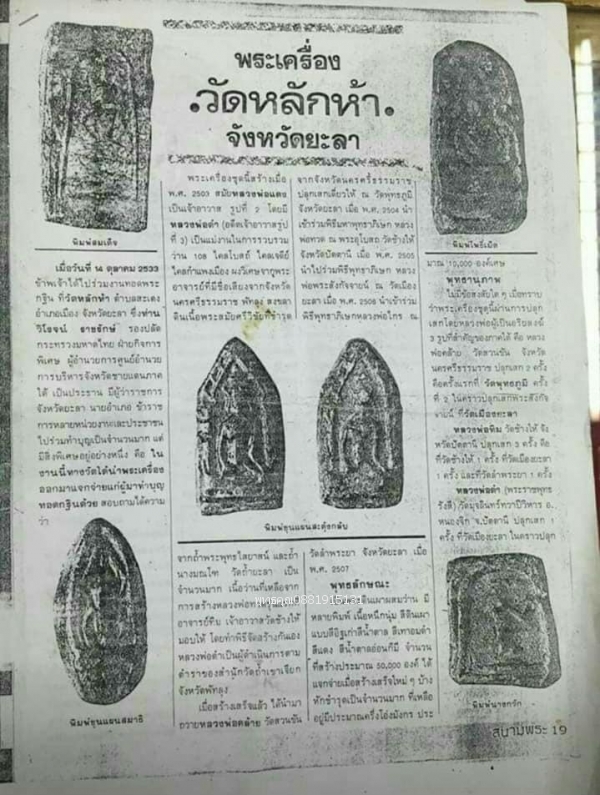 พระเครื่อง
วัดหลักห้า
จังหวัดยะลา
พิมพ์สมเด็จ
เมื่อวันที่ 14 ตุลาคม 2533
ข้าพเจ้าได้ไปร่วมงานทอดพระ
กฐิน ที่วัดหลักห้า ตำบลสะเตง
อำเภอเมือง จังหวัดยะลา ซึ่งท่าน
วิโรจน์ ราชรักษ์ รองปลัด
กระทรวงมหาดไทย ฝ่ายกิจการ
พิเศษ ผู้อำนวยการศูนย์อำนวย
การบริหารจังหวัดชายแดนภาค
ใต้ เป็นประธาน มีผู้ว่าราชการ
จังหวัดยะลา นายอำเภอ ข้าราช
การหลายหน่วยงานและประชาชน
ไปร่วมทำบุญเป็นจำนวนมาก แต่
มีสิ่งพิเศษอยู่อย่างหนึ่ง คือ ใน
งานนี้ทางวัดได้นำพระเครื่อง
ออกมาแจกจ่ายแก่ผู้มาทำบุญ
ทอดกฐินด้วย สอบถามได้ความ
ว่า
พิมพ์ขุนแผนสมาธิ
พระเครื่องชุดนี้สร้างเมื่อ
พ.ศ. 2503 สมัยหลวงพ่อแดง
เป็นเจ้าอาวาส รูปที่ 2 โดยมี
หลวงพ่อดำ (อดีตเจ้าอาวาสรูป
ที่ 3) เป็นแม่งานในการรวบรวม
ว่าน 108 ไคลโบสถ์ ไคลเจดีย์
ไคลกำแพงเมือง ผงวิเศษจากพระ
อาจารย์ที่มีชื่อเสียงจากจังหวัด
นครศรีธรรมราช พัทลุง สงขลา
ดินเนื้อพระสมัยศรีวิชัยที่ชำรุด
พิมพ์ขุนแผนสะดุ้งกลับ
จากถ้ำพระพุทธไสยาสน์ และถ้ำ
นางมณโฑ วัดถ้ำยะลา เป็น
จำนวนมาก เนื้อว่านที่เหลือจาก
การสร้างหลวงพ่อทวด
อาจารย์ทิม เจ้าอาวาสวัดช้างให้
มอบให้ โดยทำพิธีจัดสร้างกันเอง
หลวงพ่อดำเป็นผู้ดำเนินการตาม
ตำราของสำนักวัดถ้ำเขาเจียก
จังหวัดพัทลุง
เมื่อสร้างเสร็จแล้ว ได้นำมา
ถวายหลวงพ่อคล้าย วัดสวนขัน
จากจังหวัดนครศรีธรรมราช
ปลุกเสกเดี่ยวให้ ณ วัดพุทธภูมิ
จังหวัดยะลา เมื่อ พ.ศ. 2504 นำ
เข้าร่วมพิธีมหาพุทธาภิเษก หลวง
พ่อทวด ณ พระอุโบสถวัดช้างให้
จังหวัดปัตตานี เมื่อ พ.ศ. 2505
นำไปร่วมพิธีพุทธาภิเษก หลวง
พ่อพระสังกัจจายน์ ณ วัดเมือง
ยะลา เมื่อ พ.ศ. 2506 นำเข้าร่วม
พิธีพุทธาภิเษกหลวงพ่อไกร ณ
วัดลำพระยา จังหวัดยะลา เมื่อ
พ.ศ. 2507
พุทธลักษณะ
เป็นดินเผาผสมว่าน มี
หลายพิมพ์ เนื้อหนึกนุ่ม สีดินเผา
แบบสีอิฐเก่าสีน้ำตาล สีเทาอมดำ
สีแดง สีน้ำตาลอ่อนก็มี จำนวน
ที่สร้างประมาณ 50,000 องค์ ได้
แจกจ่ายเมื่อสร้างเสร็จใหม่ๆ บ้าง
หักชำรุดเป็นจำนวนมาก ที่เหลือ
อยู่มีประมาณครึ่งโอ่งมังกร ประ
พิมพ์โพธิ์เม็ด
มาณ 10,000 องค์เศษ
พุทธานุภาพ
ไม่มีข้อสงสัยใดๆ เมื่อทราบ
ว่าพระเครื่องชุดนี้ผ่านการปลุก
เสกโดยหลวงพ่อผู้เป็นอริยสงฆ์
3 รูปที่สำคัญของภาคใต้ คือ หลวง
พ่อคล้าย วัดสวนขัน จังหวัด
นครศรีธรรมราช ปลุกเสก 2 ครั้ง
คือครั้งแรกที่ วัดพุทธภูมิ ครั้ง
ที่ 2 ในคราวปลุกเสกพระสังกัจ
จายน์ ที่วัดเมืองยะลา
หลวงพ่อทิม วัดช้างให้ จัง
หวัดปัตตานี ปลุกเสก 3 ครั้ง คือ
ที่วัดช้างให้ 1 ครั้ง ที่วัดเมืองยะลา
1 ครั้ง และที่วัดลำพระยา 1 ครั้ง
หลวงพ่อดำ (พระราชพุทธ
รังสี) วัดมุจลินทวาปีวิหาร อ.
หนองจิก จ.ปัตตานี ปลุกเสก 1
ครั้ง ที่วัดเมืองยะลา ในคราวปลุก
พิมพ์นาคปรก
สนามพระ 19